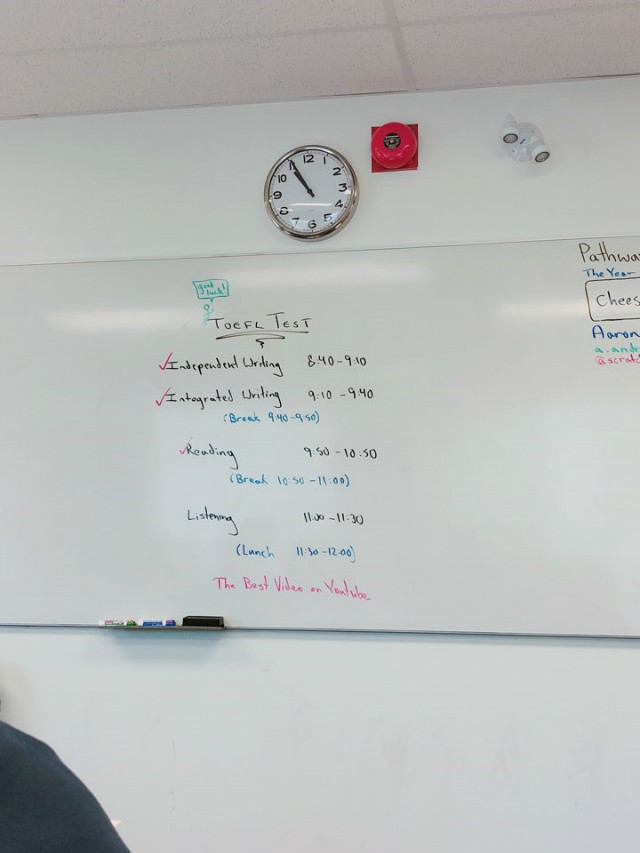 12
1
2
3
4
5
6
7
8
9
10
11
good
luck!
TOEFL TEST
Independent Writing 8:40-9:10
Intagrated Writing 9:10 - 9:40
(Break 9:40-9:50)
Reading 9:50 - 10:50
(Break 10:50 - 11:00)
Listening 11:00 - 11:30
(Lunch 11:30 - 12:00)
The Best Video on Youtube
Pathwa
The Year
Chees
Aaron
a.andr
@scratc